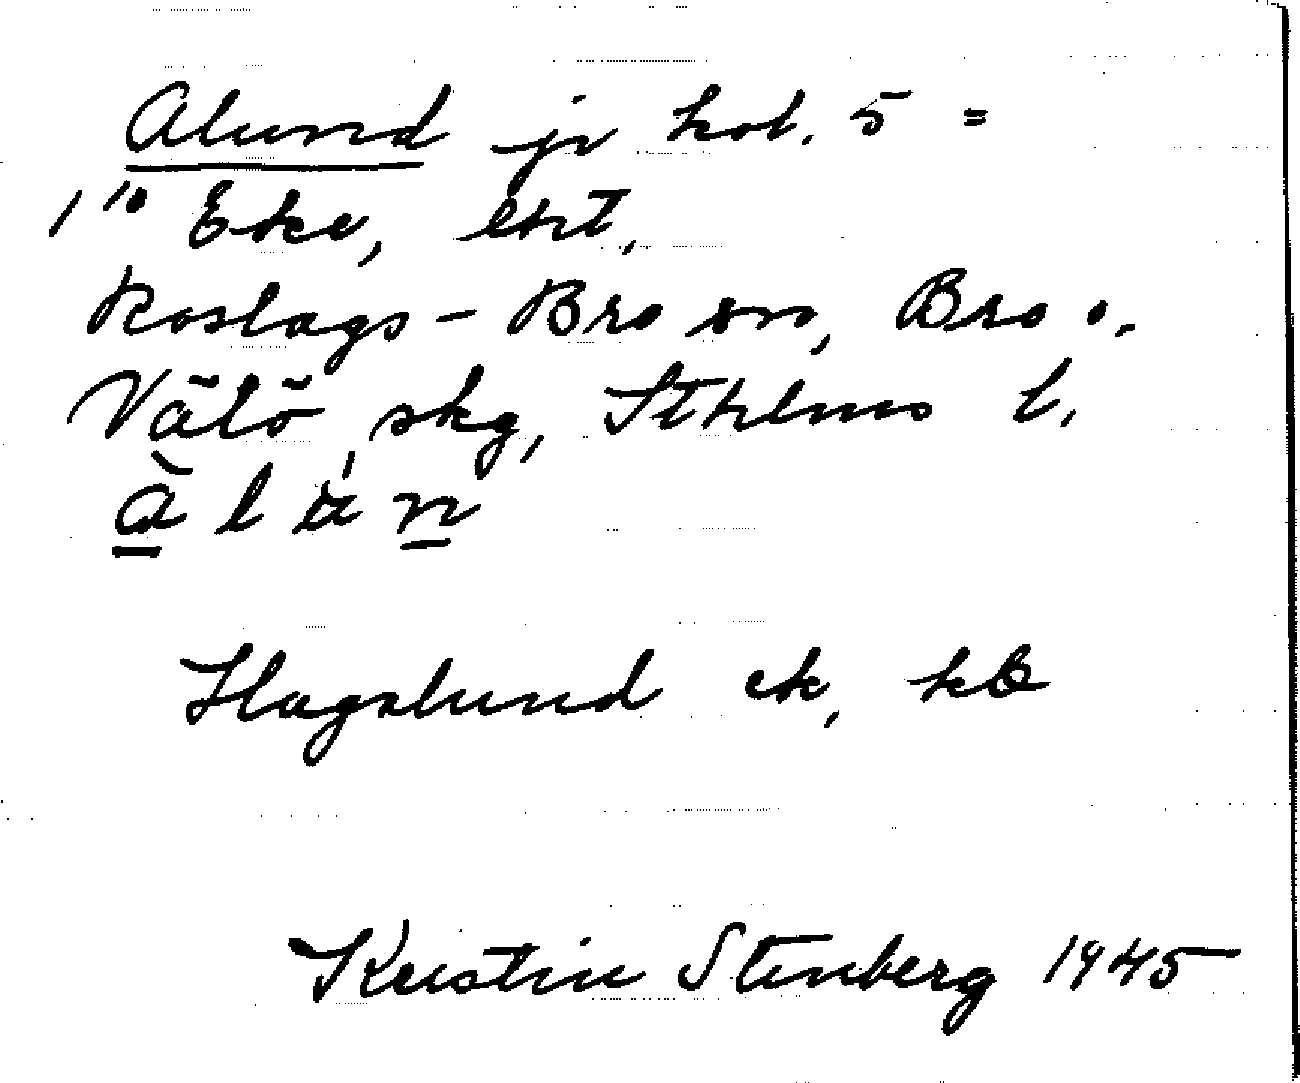 Alund jr kol. 5 =
1¹⁰ Eke, ekt.
Roslags-Bro sn, Bro o.
Välö skg, Sthlms l.
àlún
Hagslund ek, kb
Kerstin Stenberg 1945